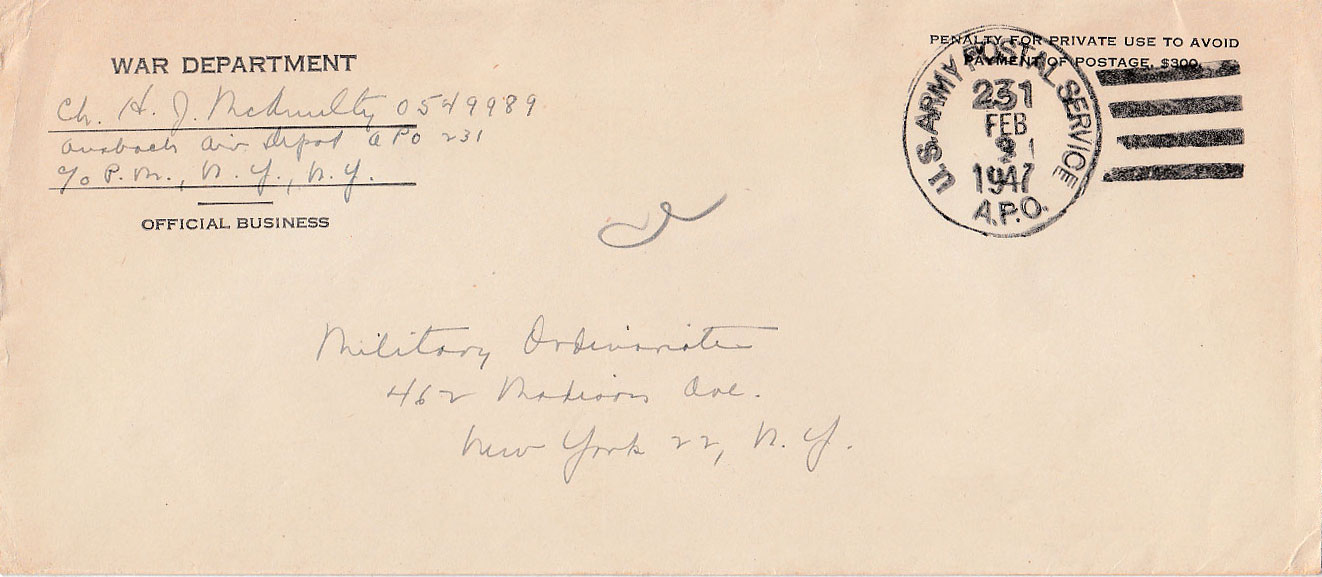 WAR DEPARTMENT
Ch. H. J. McAnulty 0549989
Ansbach Air Depot APO 231
c/o P.M., N.Y., N.Y.
OFFICIAL BUSINESS
PENALTY FOR PRIVATE USE TO AVOID
PAYMENT OF POSTAGE, $300
U.S. ARMY POSTAL SERVICE
231
FEB
1947
A.P.O.
Military Ordinariate
462 Madison Ave.
New York 22, N.Y.